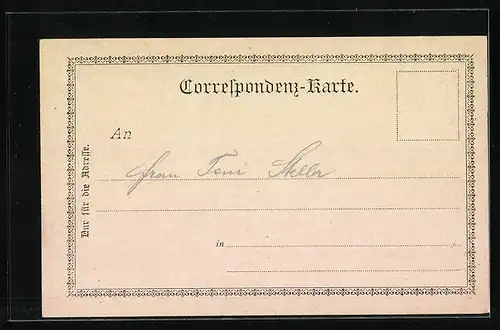 Correſpondenz-Karte.
An
Frau Toni Steller
in
Nur für die Adreſſe.